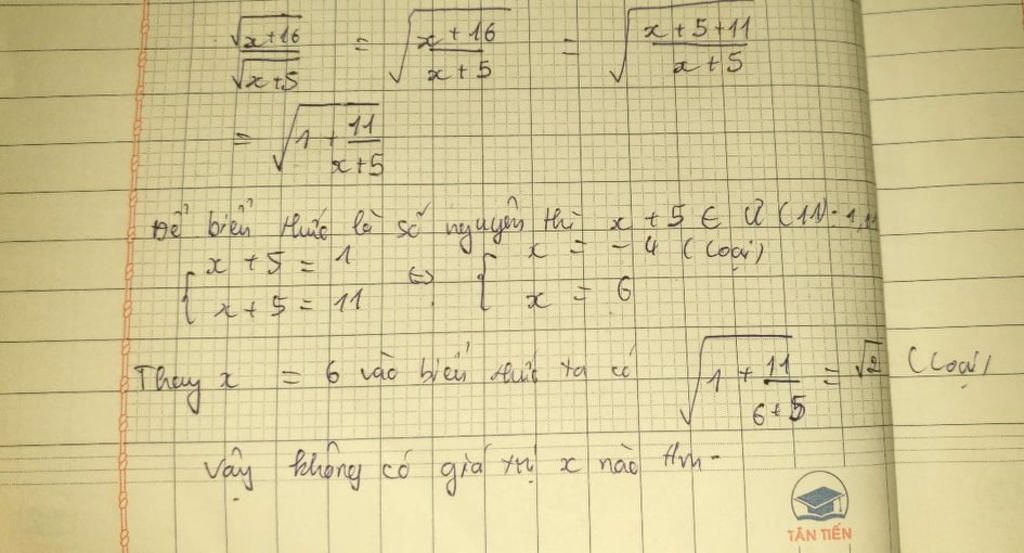 √(x+16) / √(x+5) = √((x+16)/(x+5)) = √((x+5+11)/(x+5))
= √(1 + 11/(x+5))
Để biểu thức là số nguyên thì x + 5 ∈ Ư (11):
{ x + 5 = 1 ⇔ { x = -4 (loại)
x + 5 = 11 x = 6
Thay x = 6 vào biểu thức ta có √(1 + 11/(6+5)) = √2 (loại)
Vậy không có giá trị x nào tm.
TÂN TIẾN